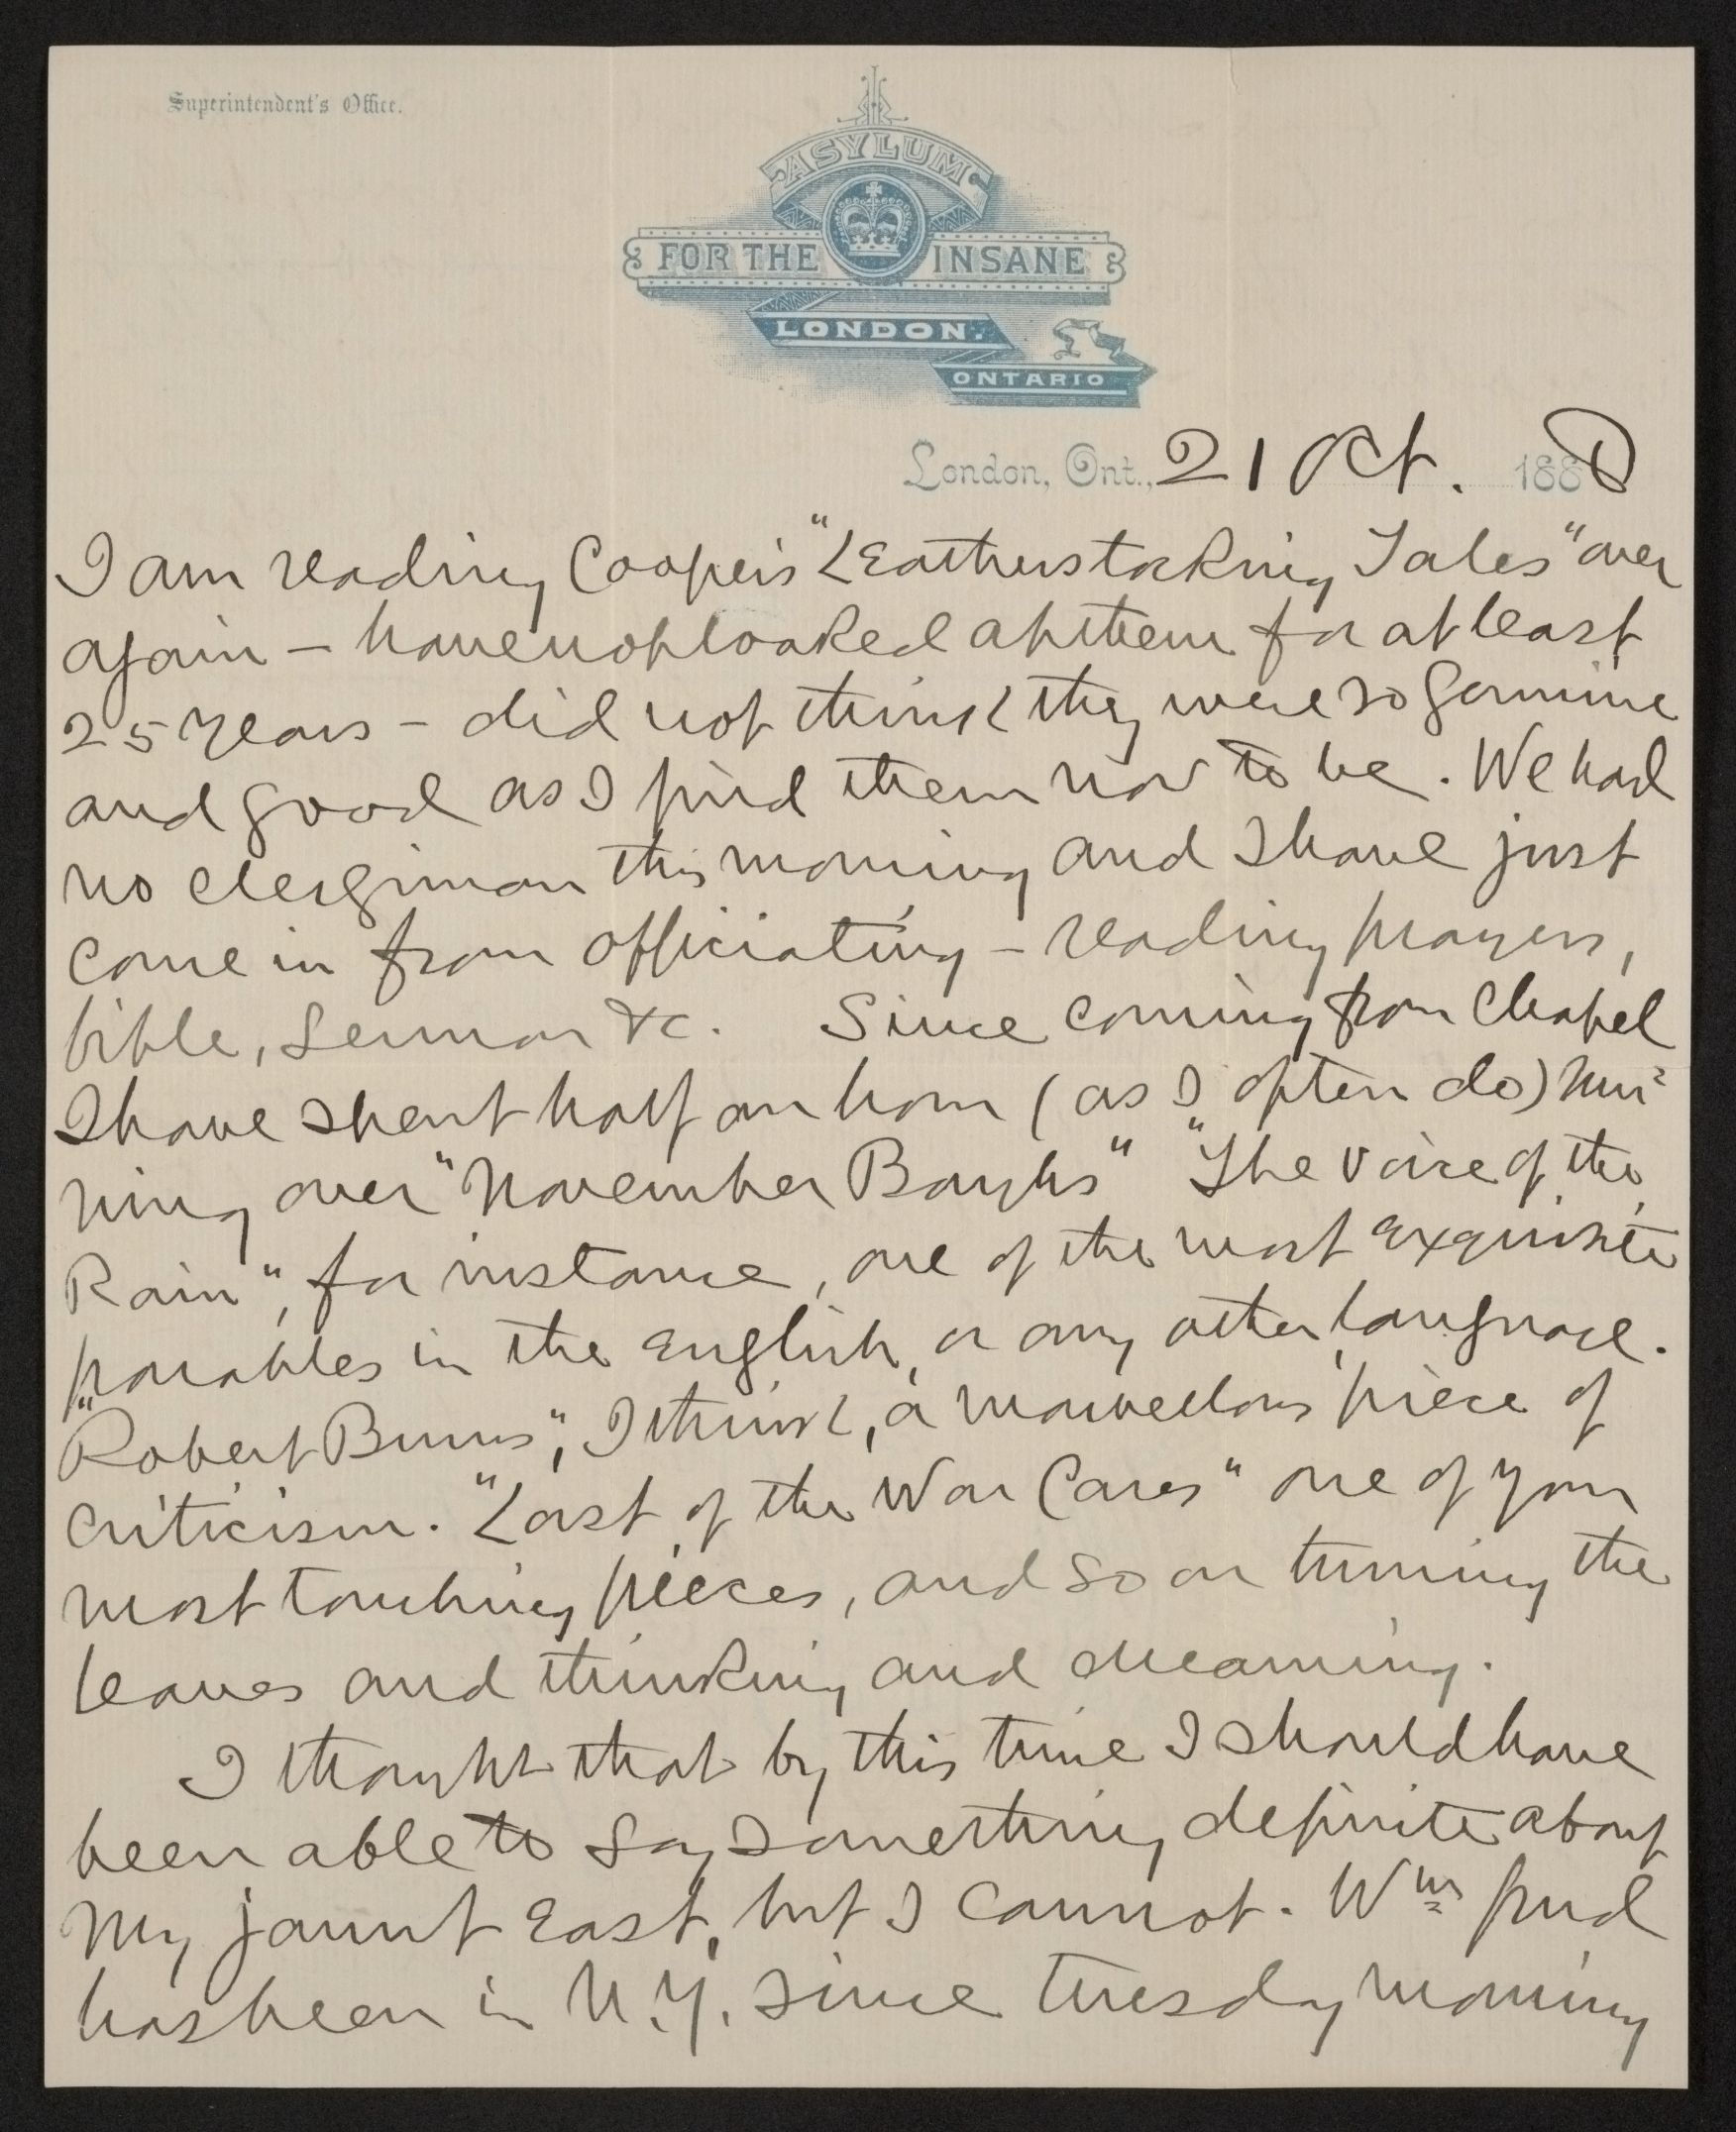 Superintendent's Office.
ASYLUM
FOR THE INSANE
LONDON.
ONTARIO
London, Ont., 21 Oct. 1888
I am reading Cooper's "Leatherstocking Tales" over
again – have not looked at them for at least
25 years – did not think they were so genuine
and good as I find them now to be. We had
no clergiman this morning and I have just
come in from officiating – reading prayers,
bible, sermon &c. Since coming from Chapel
I have spent half an hour (as I often do) run-
ning over "November Boughs" "The Voice of the
Rain", for instance, one of the most exquisite
parables in the English, or any other, language.
"Robert Burns", I think, a marvellous piece of
criticism. "Last of the War Cases" one of your
most touching pieces, and so on turning the
leaves and thinking and dreaming.
I thought that by this time I should have
been able to say something definite about
my jaunt East, but I cannot. Wm Gurd
has been in N.Y. since tuesday morning